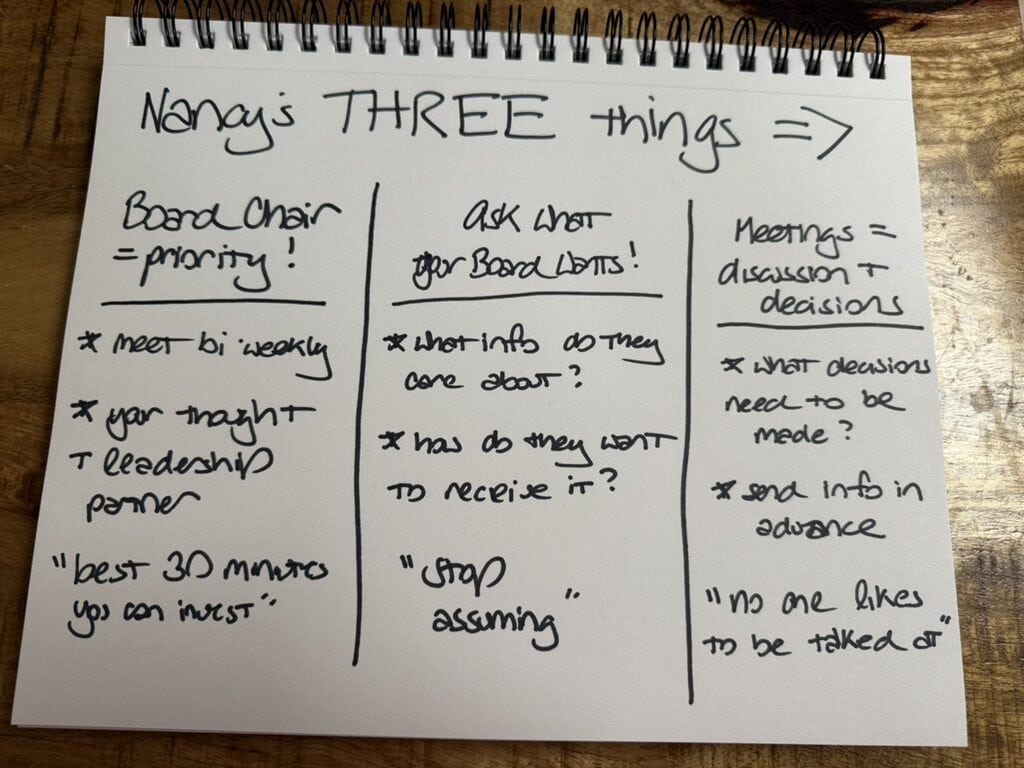 Nancy's THREE things =>
Board Chair
= priority!
* meet bi weekly
* your thought
+ leadership
partner
"best 30 minutes
you can invest"
ask what
your Board wants!
* what info do they
care about?
* how do they want
to receive it?
"stop
assuming"
Meetings =
discussion +
decisions
* what decisions
need to be
made?
* send info in
advance
"no one likes
to be talked at"